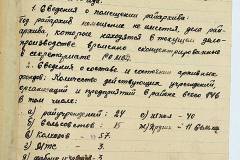 1. Сведения о помещении райархива:
Под райархив помещение не имеется, дела рай-
архива, которые находятся в текущем дело-
производстве временно сконцентрированы
в секретариате
2. Сведения о составе и состоянии архивных
фондов: Количество действующих учреждений,
организаций и предприятий в районе всего 146
в том числе:
а) райучреждений: 24 е) школ - 40
б) сельсоветов - 15
в) колхозов - 57.
г) МТС - 3.
д) 3.